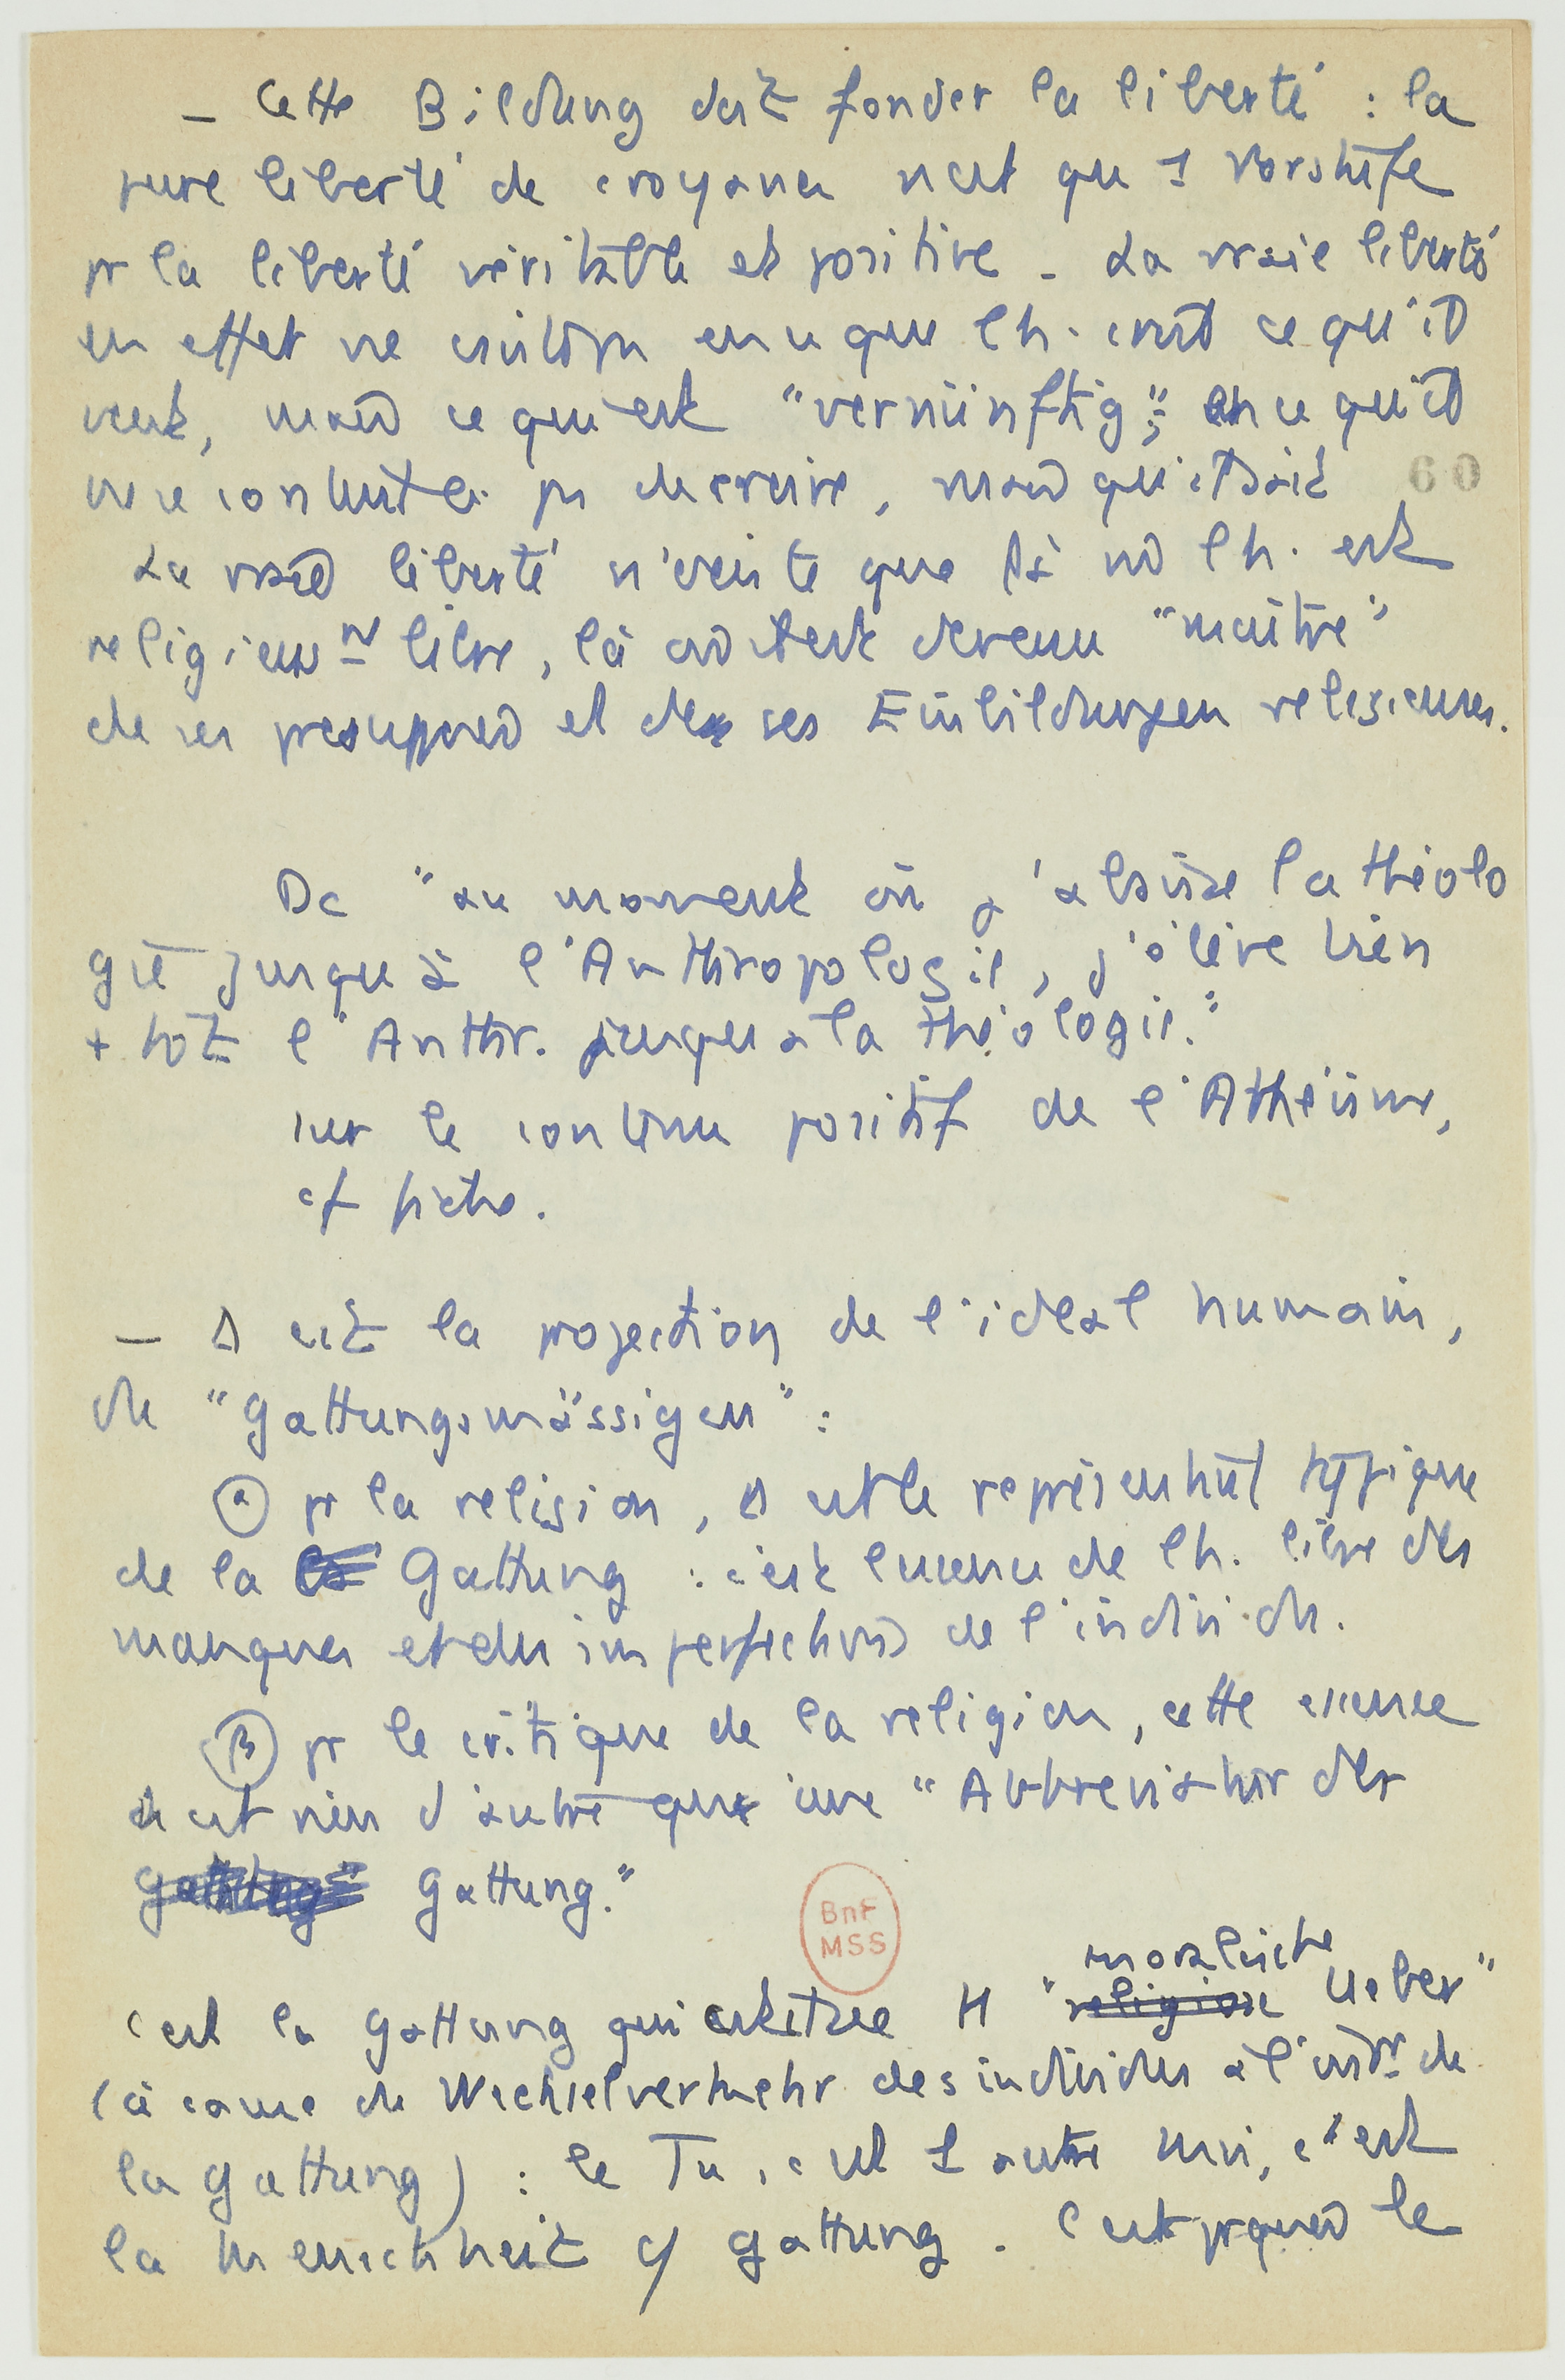 – Cette Bildung doit fonder la liberté : la
pure liberté de croyance n'est qu 1 Vorstufe
pr la liberté véritable et positive – La vraie liberté
en effet ne consiste pas en ce que l h. croit ce qu'il
veut, mais ce qui est "vernünftig" ; en ce qu'il
ne se contente pas de croire, mais qu'il sait
60
La vraie liberté n'existe que là où l h. est
religieusnt libre, là où il est devenu "maître"
de ses présupposés et de ses Einbildungen religieuses.
Dc "au moment où j'abaisse la théolo
gie jusqu'à l'Anthropologie, j'élève bien
+ tôt l'Anthr. jusqu'à la théologie."
sur le contenu positif de l'Athéisme,
cf fiche.
– Δ est la projection de l'idéal humain,
du "Gattungsmässigen" :
(α) pr la religion, Δ est le représentant typique
de la Gattung : c'est l'essence de l h. libre des
manques et des imperfections de l'individu.
(β) pr le critique de la religion, cette essence
n'est rien d'autre que une "Abbreviatur der
Gattung."
BnF
MSS
moralische
c'est la Gattung qui est itree H "religiöse Ueber"
(à cause du Wechselverkehr des individus à l'intr de
la Gattung) : le Tu, c'est 1 autre moi, c'est
la Menschheit c/ Gattung. C'est pquoi le